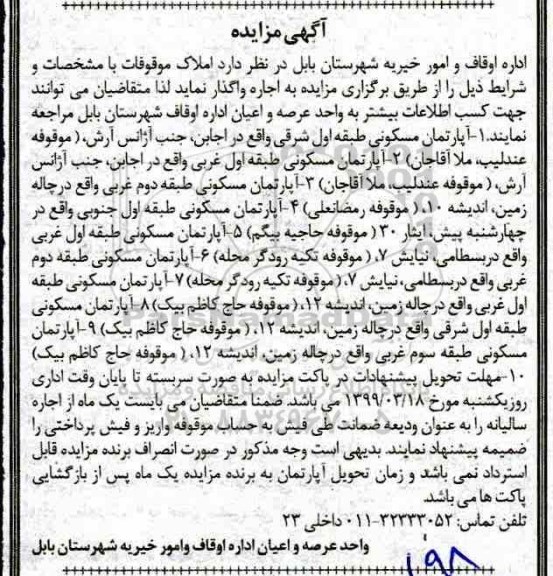 آگهی مزایده
اداره اوقاف و امور خیریه شهرستان بابل در نظر دارد املاک موقوفات با مشخصات و
شرایط ذیل را از طریق برگزاری مزایده به اجاره واگذار نماید لذا متقاضیان می توانند
جهت کسب اطلاعات بیشتر به واحد عرصه و اعیان اداره اوقاف شهرستان بابل مراجعه
نمایند.۱-آپارتمان مسکونی طبقه اول شرقی واقع در اجابن، جنب آژانس آرش، (موقوفه
عندلیب، ملا آقاجان) ۲-آپارتمان مسکونی طبقه اول غربی واقع در اجابن، جنب آژانس
آرش، (موقوفه عندلیب، ملا آقاجان) ۳-آپارتمان مسکونی طبقه دوم غربی واقع درچاله
زمین، اندیشه ۱۰، (موقوفه رمضانعلی) ۴-آپارتمان مسکونی طبقه اول جنوبی واقع در
چهارشنبه پیش، ایثار ۳۰ (موقوفه حاجیه بیگم) ۵-آپارتمان مسکونی طبقه اول غربی
واقع دربسطامی، نیایش ۷، (موقوفه تکیه رودگر محله) ۶-آپارتمان مسکونی طبقه دوم
غربی واقع دربسطامی، نیایش ۷، (موقوفه تکیه رودگر محله) ۷-آپارتمان مسکونی طبقه
اول غربی واقع درچاله زمین، اندیشه ۱۲، (موقوفه حاج کاظم بیک) ۸-آپارتمان مسکونی
طبقه اول شرقی واقع درچاله زمین، اندیشه ۱۲، (موقوفه حاج کاظم بیک) ۹-آپارتمان
مسکونی طبقه سوم غربی واقع درچاله زمین، اندیشه ۱۲، (موقوفه حاج کاظم بیک)
۱۰-مهلت تحویل پیشنهادات در پاکت مزایده به صورت سربسته تا پایان وقت اداری
روز یکشنبه مورخ ۱۳۹۹/۰۳/۱۸ می باشد. ضمنا متقاضیان می بایست یک ماه از اجاره
سالیانه را به عنوان ودیعه ضمانت طی فیش به حساب موقوفه واریز و فیش پرداختی را
ضمیمه پیشنهاد نمایند. بدیهی است وجه مذکور در صورت انصراف برنده مزایده قابل
استرداد نمی باشد و زمان تحویل آپارتمان به برنده مزایده یک ماه پس از بازگشایی
پاکت ها می باشد.
تلفن تماس: ۳۲۳۳۳۰۵۲-۰۱۱ داخلی ۲۳
واحد عرصه و اعیان اداره اوقاف وامور خیریه شهرستان بابل
۱۹۸